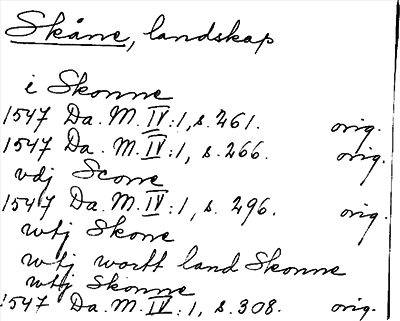 Skåne, landskap
i Skonne
1547 Da. M. IV:1, s. 261. orig.
1547 Da. M. IV:1, s. 266. orig.
vdj Scone
1547 Da. M. IV:1, s. 296. orig.
wtj Skone
wtj wortt land Skonne
wtj Skonne
1547 Da. M. IV:1, s. 308. orig.